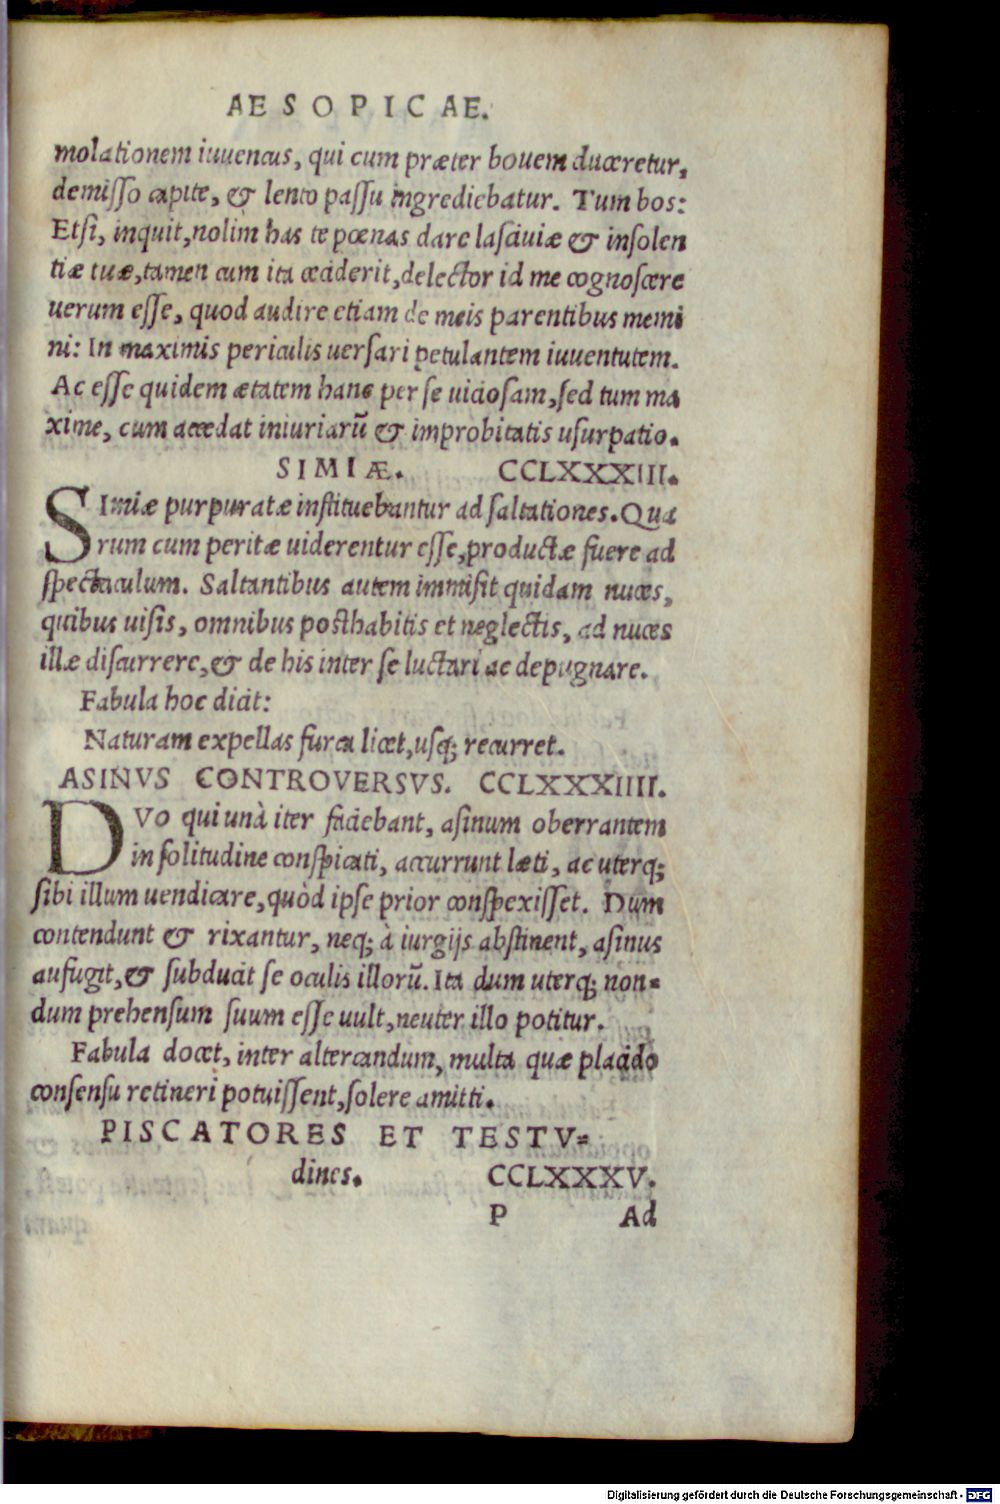 AESOPICAE.
molationem iuuencus, qui cum præter bouem duceretur,
demisso capite, & lento passu ingrediebatur. Tum bos:
Etsi, inquit, nolim has te pœnas dare lasciuiæ & insolen
tiæ tuæ, tamen cum ita acciderit, delector id me cognoscere
uerum esse, quod audire etiam de meis parentibus memi
ni: In maximis periculis uersari petulantem iuuentutem.
Ac esse quidem ætatem hanc per se uiciosam, sed tum ma
xime, cum accedat iniuriarũ & improbitatis usurpatio.
SIMIÆ. CCLXXXIII.
SImiæ purpuratæ instituebantur ad saltationes. Qua
rum cum peritæ uiderentur esse, productæ fuere ad
spectaculum. Saltantibus autem immisit quidam nuces,
quibus uisis, omnibus posthabitis et neglectis, ad nuces
illæ discurrere, & de his inter se luctari ac depugnare.
Fabula hoc dicit:
Naturam expellas furca licet, usq; recurret.
ASINVS CONTROVERSVS. CCLXXXIIII.
DVO qui unà iter faciebant, asinum oberrantem
in solitudine conspicati, accurrunt læti, ac uterq;
sibi illum uendicare, quòd ipse prior conspexisset. Dum
contendunt & rixantur, neq; à iurgijs abstinent, asinus
aufugit, & subducit se oculis illorũ. Ita dum uterq; non-
dum prehensum suum esse uult, neuter illo potitur.
Fabula docet, inter altercandum, multa quæ placido
consensu retineri potuissent, solere amitti.
PISCATORES ET TESTV-
dines. CCLXXXV.
P Ad
Digitalisierung gefördert durch die Deutsche Forschungsgemeinschaft - DFG